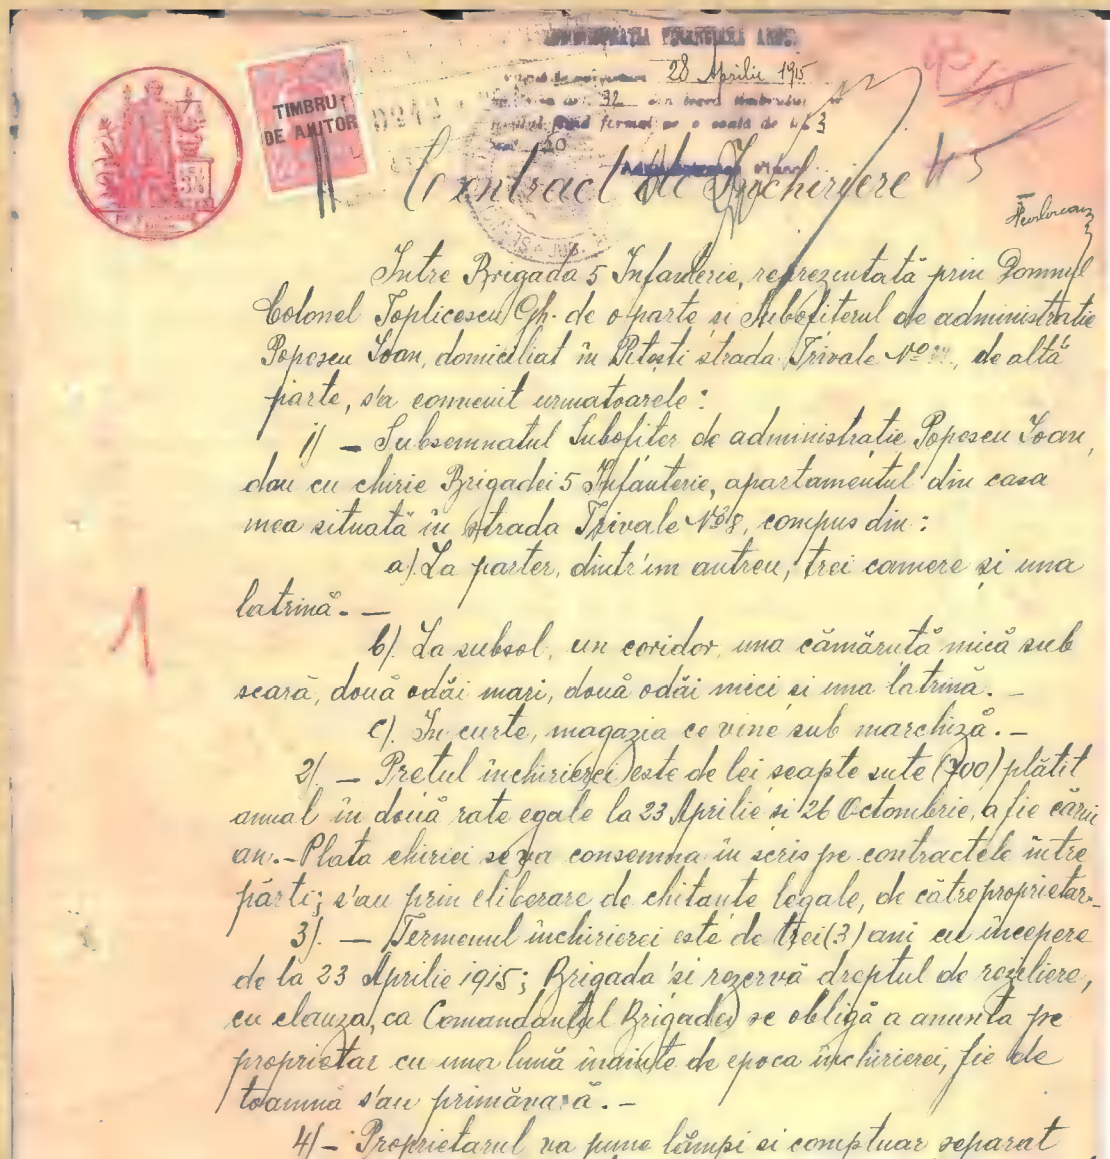 ADMINISTRAȚIA FINANCIARĂ
28 Aprilie 1915
32 din legea timbrului
fiind format pe o coală de lei 3
20
TIMBRU
DE AJUTOR
0242
Contract de Închiriere
Intre Brigada 5 Infanterie, reprezentată prin Domnul
Colonel Toplicescu Gh. de o parte si Subofiterul de administratie
Popescu Ioan, domiciliat în Pitesti strada Trivale No, de altă
parte, s'a convenit urmatoarele:
1) – Subsemnatul Subofiter de administratie Popescu Ioan,
dau cu chirie Brigadei 5 Infanterie, apartamentul din casa
mea situată in strada Trivale No 8, compus din:
a) La parter, dintr'un antreu, trei camere si una
latrină. –
b). La subsol, un coridor, una cămărută mică sub
scară, două odăi mari, două odăi mici si una latrină. –
c). In curte, magazia ce vine sub marchiză. –
2). – Pretul inchirierei este de lei seapte sute (700) plătit
anual in două rate egale la 23 Aprilie si 26 Octombrie, a fie cărui
an. – Plata chiriei se va consemna in scris pe contractele intre
părti; s'au prin eliberare de chitante legale, de către proprietar. –
3). – Termenul inchirierei este de trei (3) ani cu incepere
de la 23 Aprilie 1915; Brigada 'si rezervă dreptul de reziliere,
cu clauza, ca Comandantul Brigadei se obligă a anunta pe
proprietar cu una lună inainte de epoca inchirierei, fie de
toamnă s'au primăvară. –
4) – Proprietarul va pune lămpi si comptuar separat
1